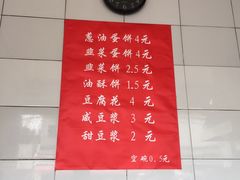 葱油蛋饼4元
韭菜蛋饼4元
韭菜饼2.5元
油酥饼1.5元
豆腐花 4 元
咸豆浆 3 元
甜豆浆 2 元
空碗0.5元